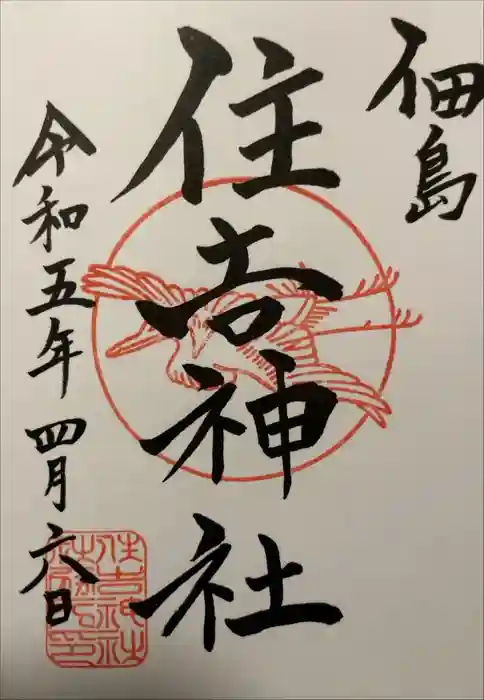 佃島
住吉神社
令和五年四月六日